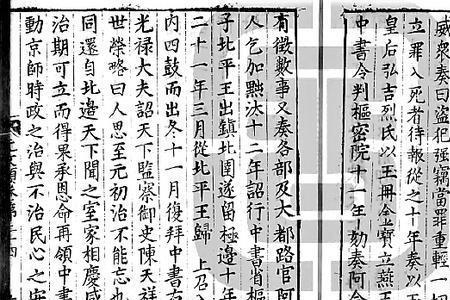 威衆奏曰盜犯强竊當罪重輕一切
立罪入死者待報從之十年奏以王
皇后弘吉烈氏以王冊金寶立燕王
中書令判樞密院十一年劾奏阿合
有徵數事又奏各部及大都路官阿
人乞加黜汰十二年詔行中書省樞
子北平王出鎮北圉遂留極邊十年
二十一年三月從北平王歸 上召入
内四鼓而出冬十一月復拜中書右
光禄大夫詔天下監察御史陳天祥
世榮略曰人思至元初治不能忘也
同還自北邊天下聞之室家相慶咸
治期可立而得果承恩命再領中書
動京師時政之治與不治民心之安